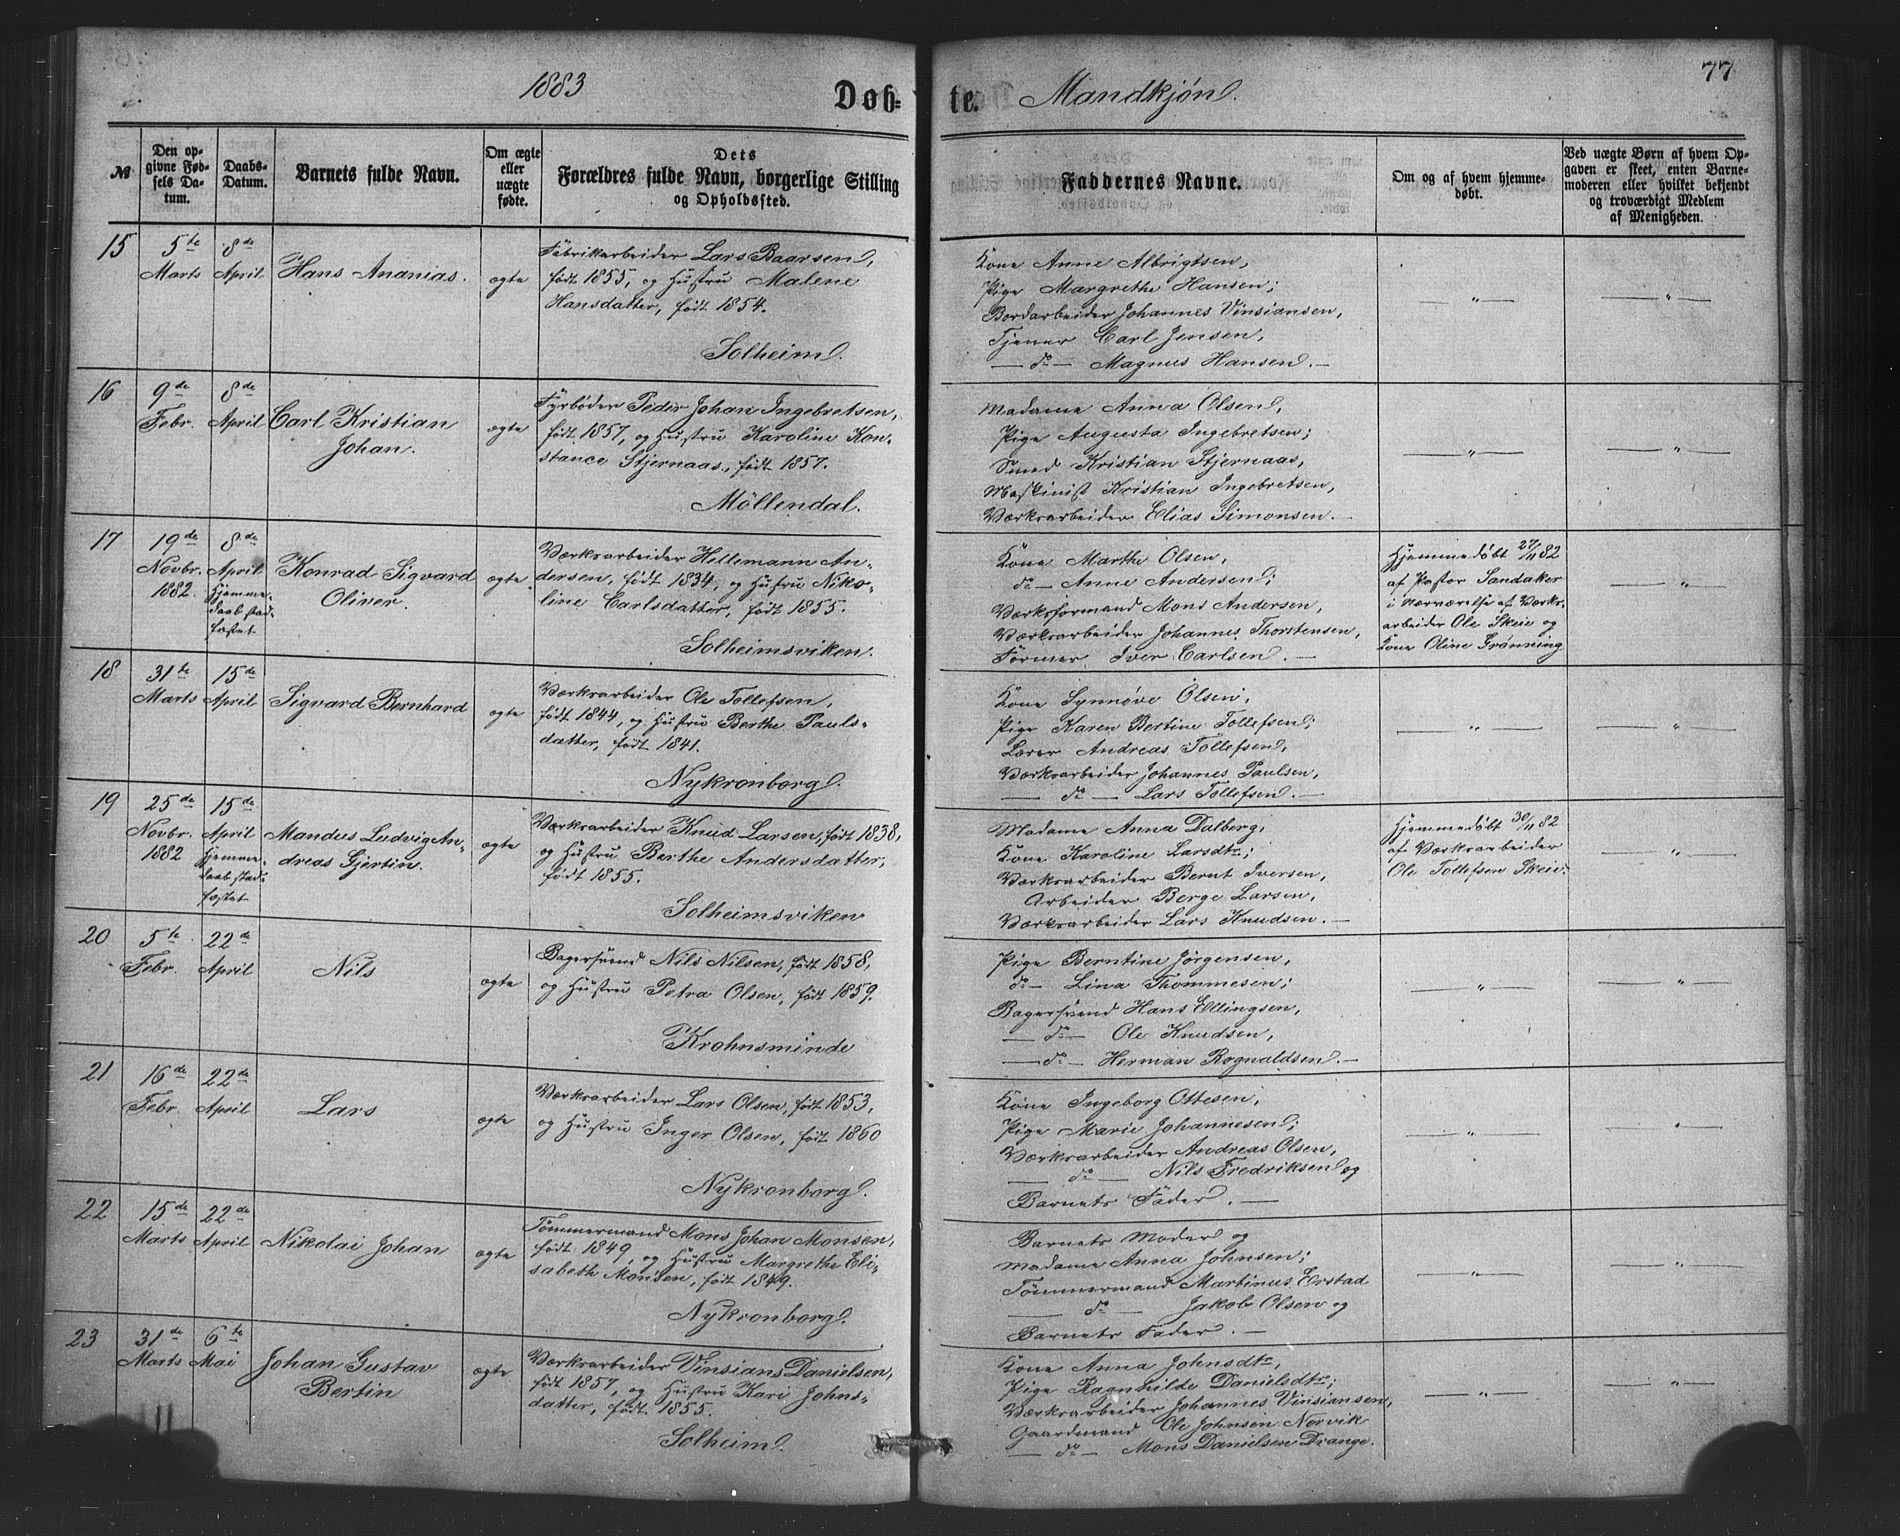 1883
Døb-
te.
Mandkjøn.
77
№
Den op-
givne Fød-
sels Da-
tum.
Daabs-
Datum.
Barnets fulde Navn.
Om ægte
eller
uægte
fødte.
Dets
Forældres fulde Navn, borgerlige Stilling
og Opholdssted.
Faddernes Navne.
Om og af hvem hjemme-
døbt.
Ved uægte Børn af hvem Op-
gaven er skeet, enten Barne-
moderen eller hvilket bekjendt
og troværdigt Medlem
af Menigheden.
15
5te
Marts
8de
April
Hans Ananias.
ægte
Fabrikarbeider Lars Baarsen,
født 1855, og Hustru Malene
Hansdatter, født 1854.
Solheim.
Kone Anne Albrigtsen,
Pige Margrethe Hansen;
Bordarbeider Johannes Vinsiansen,
Tjener Carl Jensen,
— do — Magnus Hansen. —
— „ —
— „ —
16
9de
Febr.
8de
April
Carl Kristian
Johan.
ægte
Fyrbøder Peder Johan Ingebretsen,
født 1857, og Hustru Karoline Kon-
stance Stjernaas, født 1857.
Möllendal.
Madame Anna Olsen,
Pige Augusta Ingebretsen;
Smed Kristian Stjernaas,
Maskinist Kristian Ingebretsen,
Værksarbeider Elias Simonsen. —
— „ —
— „ —
17
19de
Novbr.
1882.
8de
April
Hjemme-
daab stad-
fæstet
Konrad Sigvard
Oliver.
ægte
Værksarbeider Hillemann An-
dersen, født 1834, og Hustru Niko-
line Carlsdatter, født 1855.
Solheimsviken.
Kone Marthe Olsen,
do — Anne Andersen;
Værksformand Mons Andersen,
Værksarbeider Johannes Thorstensen,
Former Iver Carlsen. —
Hjemmedøbt 27/11 82
af Pastor Sandaker
i nærværelse af Værks-
arbeider Ole Skeie og
Kone Oline Grønning
„
18
31te
Marts
15de
April
Sigvard Bernhard
ægte
Værksarbeider Ole Tollefsen,
født 1844, og Hustru Berthe Pauls-
datter, født 1841.
Nykronborg.
Kone Synnøve Olsen,
Pige Karen Bertine Tollefsen;
Lærer Andreas Tollefsen,
Værksarbeider Johannes Paulsen,
— do — Lars Tollefsen. —
— „ —
— „ —
19
25de
Novbr.
1882
15de
April
Hjemme-
daab stad-
fæstet
Mandus Ludvig An-
dreas Gjertin.
ægte
Værksarbeider Knud Larsen, født 1838,
og Hustru Berthe Andersdatter,
født 1855.
Solheimsviken
Madame Anna Dalberg,
Kone Karoline Larsdtr;
Værksarbeider Bernt Iversen,
Arbeider Berge Larsen,
Værksarbeider Lars Knudsen. —
Hjemmedøbt 30/11 82
af Værksarbeider
Ole Tollefsen Skeie.
— „ —
20
5te
Febr.
22de
April
Nils
ægte
Bagersvend Nils Nilsen, født 1858,
og Hustru Petra Olsen, født 1859.
Krohnsminde
Pige Berntine Jørgensen,
do — Lina Thommesen;
Bagersvend Hans Ellingsen,
— do — Ole Knudsen,
— do — Herman Rognaldsen. —
— „ —
— „ —
21
16de
Febr.
22de
April
Lars
ægte
Værksarbeider Lars Olsen, født 1853,
og Hustru Inger Olsen, født 1860
Nykronborg.
Kone Ingeborg Ottesen,
Pige Marie Johannesen;
Værksarbeider Andreas Olsen,
— do — Nils Fredriksen og
Barnets Fader. —
— „ —
— „ —
22
15de
Marts
22de
April
Nikolai Johan
ægte
Tømmermand Mons Johan Monsen,
født 1849, og Hustru Margrethe Eli-
sabeth Monsen, født 1849.
Nykronborg.
Barnets Moder og
Madame Anna Johnsen;
Tømmermand Martinus Erstad
— do — Jakob Olsen og
Barnets Fader. —
— „ —
— „ —
23
31de
Marts
6te
Mai
Johan Gustav
Bertin
ægte
Værksarbeider Vinsians Danielsen,
født 1857, og Hustru Kari Johns-
datter, født 1855.
Solheim.
Kone Anna Johnsdtr,
Pige Ragnhilde Danielsdtr;
Værksarbeider Johannes Vinsiansen,
Gaardmand Ole Johnsen Norvik
— do — Mons Danielsen Drange.
— „ —
— „ —